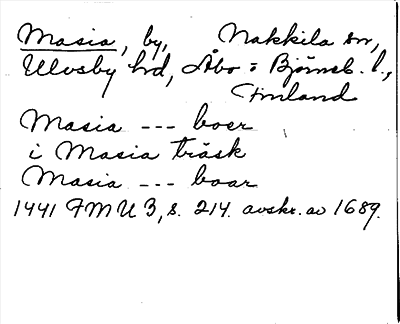 Masia, by, Nakkila sn,
Ulvsby hd, Åbo = Björneb. l.,
Finland
Masia --- boer
i Masia träsk
Masia --- boar
1441 FMU 3, s. 214. avskr. av 1689.